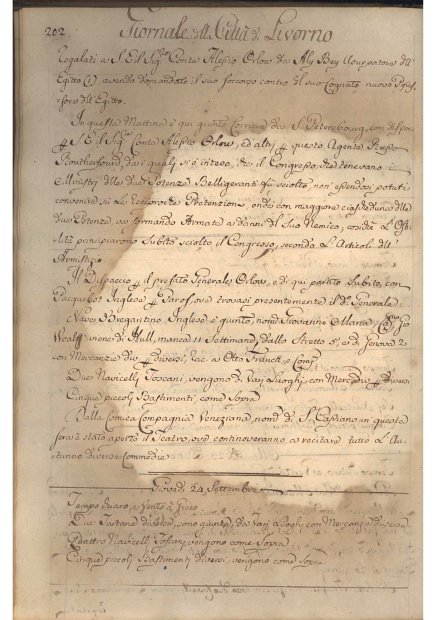 202. Giornale della Città di Livorno
Regalati a S. E. il Sigr. Conte Alessio Orlow da Aly Bey Usurpatore dell'
Egitto (1) avendo domandato il suo soccorso contro del suo Cognato nuovo Posses-
sore dell'Egitto.
In questa Mattina è qui giunto Corriere da S. Petersbourg, con dispacci
p S. E. il Sigr. Conte Alessio Orlow, ed altri p questo Agente Russo
Routherfourd, dai quali si è inteso, che il Congresso, che tenevano i
Ministri delle due Potenze Belligeranti si è sciolto, non essendosi potuti
convenire in le reciproche Pretensioni, onde con maggiore ciascheduna delle
due Potenze, va formando Armata a danni del suo Nemico, e le Osti-
lità principiarono Subito sciolto il Congresso, secondo l'Articoli dell'
Armistizio.
Il Dispaccio p il prefato Generale Orlow, è di qui partito Subito, con
Pacquebot Inglese p Paros, ove trovasi presentemente il do. Generale
Nave, o Brigantino Inglese è giunto, nomo. Giovanni e Maria, Capno. Gio.
viene di Hull, manca 11 Settimane, dallo Stretto 5, e di Genova 2
con Mercanzie div. p diversi, rac. a Otto Franck, e Comp.
Due Navicelli Toscani, vengono di Varj Luoghi, con Mercanzie p diversi
Cinque piccoli Bastimenti, come Sopra
Dalla Comica Compagnia Veneziana nomta. di S. Cassiano in questa
sera è stato aperto il Teatro, ove continoveranno a recitare tutto l'Au-
tunno diverse Commedie
Giovedì 24 Settembre
Tempo Chiaro, e Vento à Greco
Due Tartane diverse, sono giunte, da Varj Luoghi con Mercanzie diverse
Quattro Navicelli Toscani, vengono come Sopra
Cinque piccoli Bastimenti diversi, vengono come Sopra